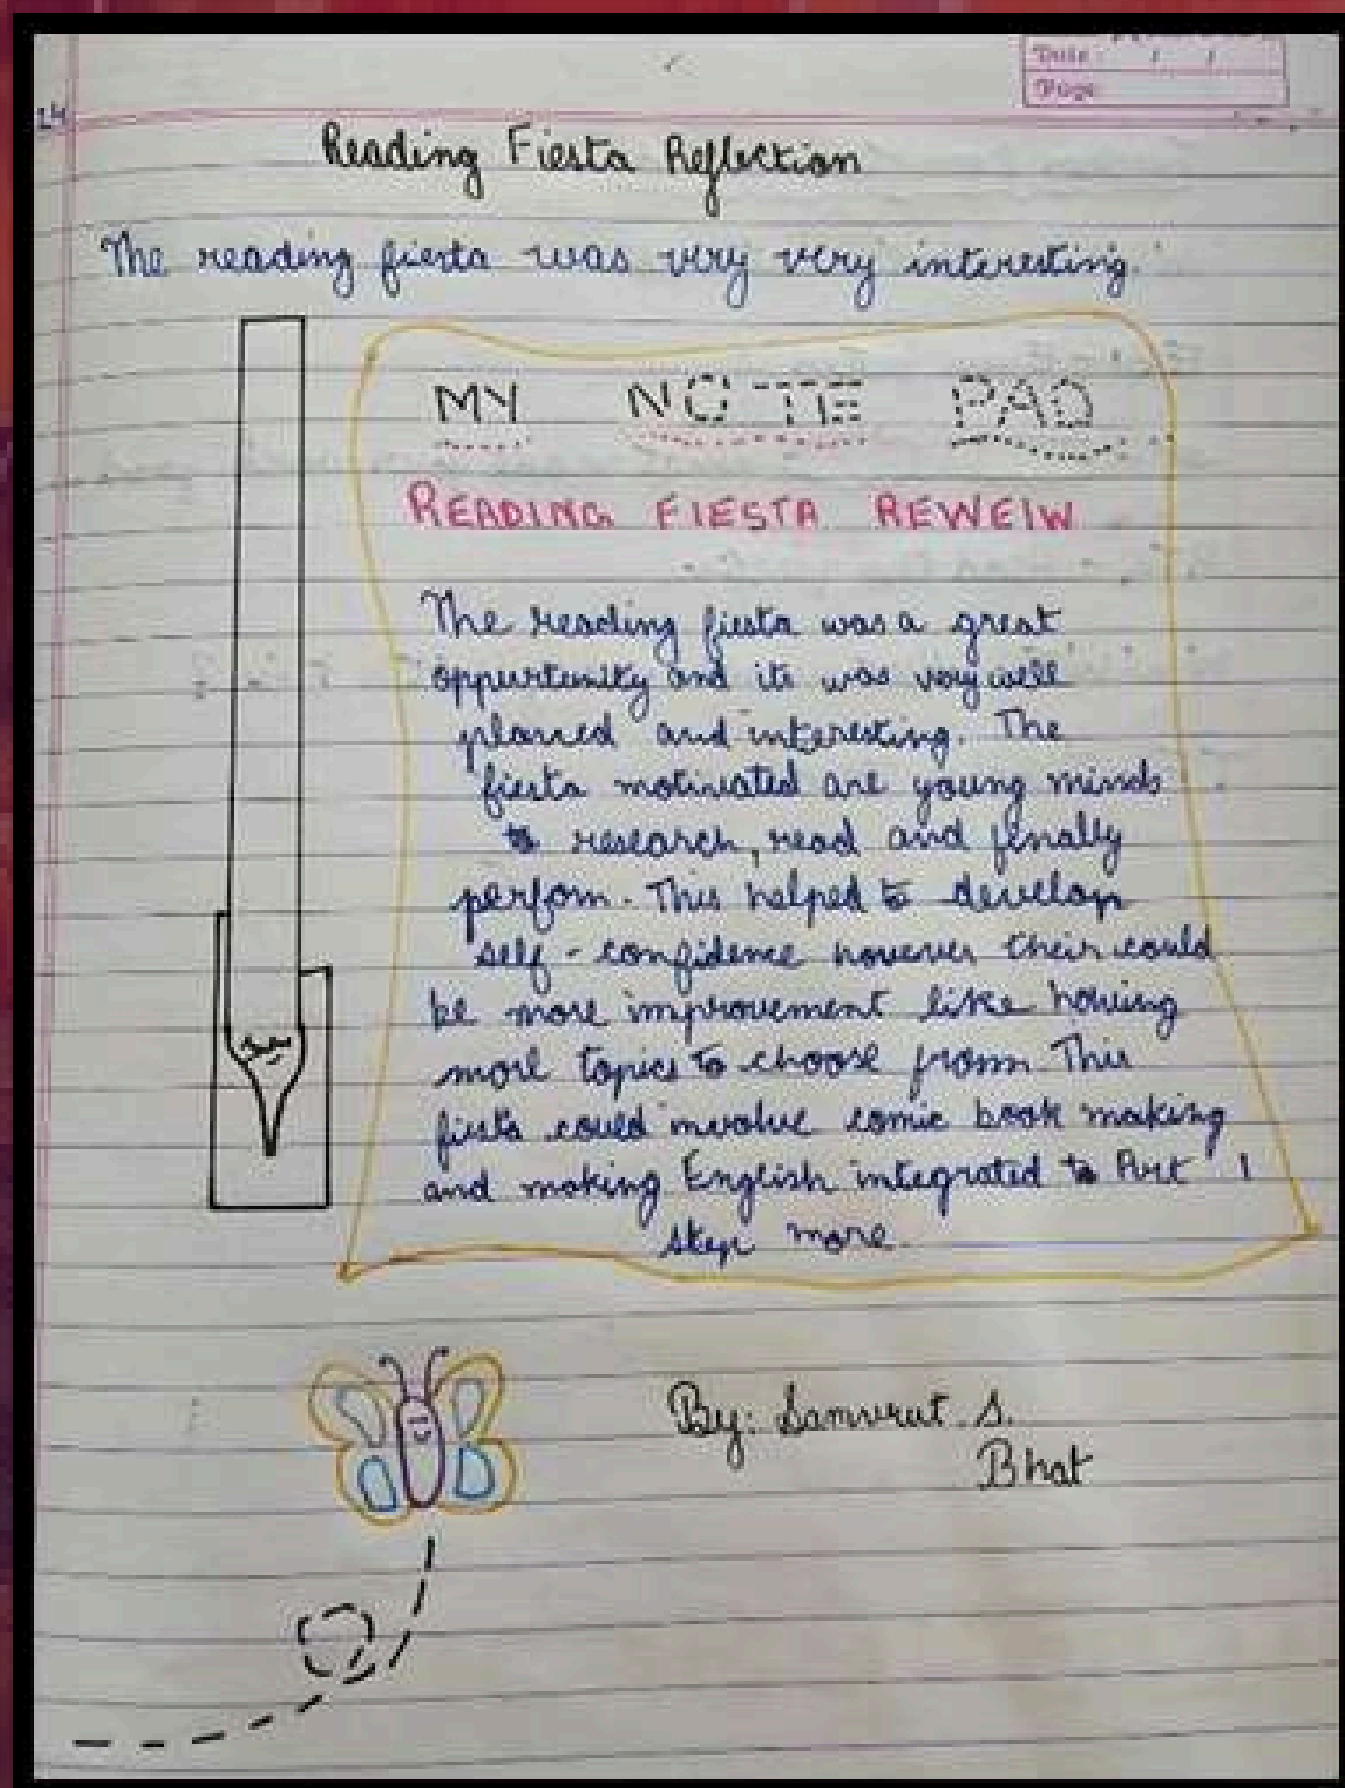 Date: / /
Page
24
Reading Fiesta Reflection
The reading fiesta was very very interesting.
MY NOTE PAD
READING FIESTA REWEIW
The reading fiesta was a great
oppurtunity and its was very well
planned and interesting. The
fiesta motivated are young minds
to research, read and finally
perfom. This helped to develop
self-confidence however their could
be more improvement like having
more topics to choose from. This
fiesta could involve comic book making
and making English integrated to Art 1
step more.
By: Samvrut. S.
Bhat